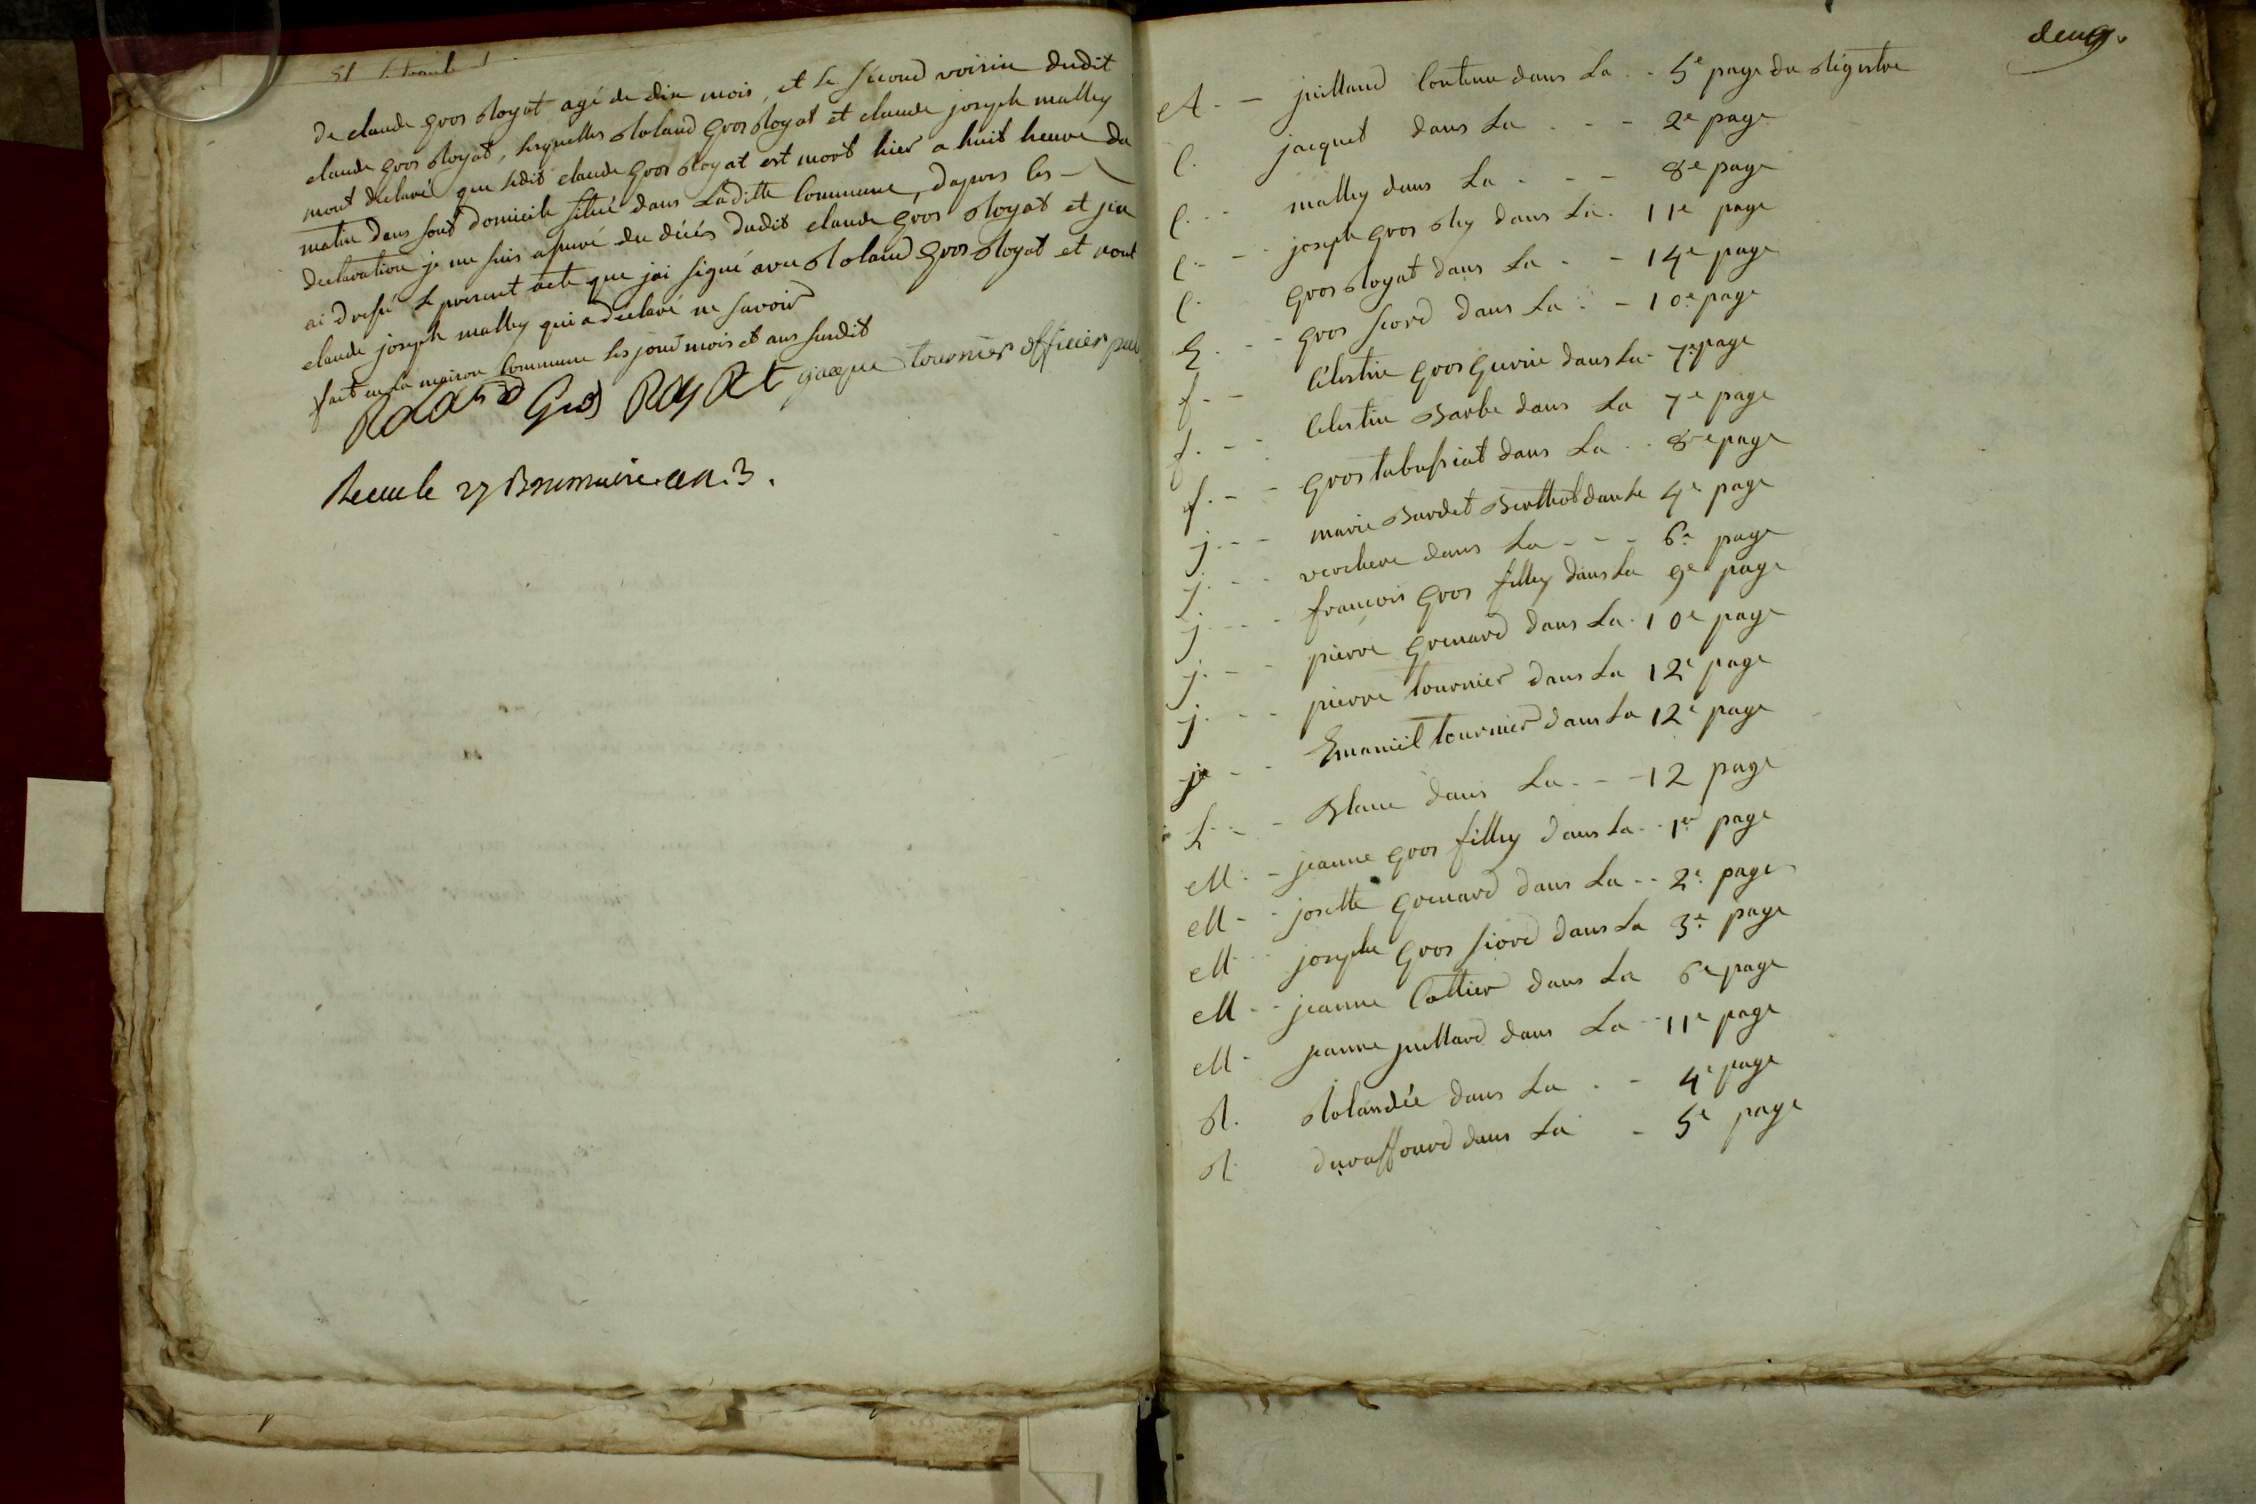 de claude gros Royat agé de dix mois, et le second voisin dudit
claude gros Royat, lesquelles Roland gros Royat et claude joseph malley
mont déclaré que ledit claude gros Royat est mort hier a huit heure du
matin dans sont domicile situé dans Laditte Commune, dapres les
declaration je me suis assuré du décés dudit claude gros Royat et jen
ai dressé le present acte que jai signé avec Roland gros Royat et nont
claude joseph malley qui a declaré ne savoir
fait en la maison Commune les jour mois et ans susdit
Roland Gros Royat jacque tournier officier pub
Recu le 27 Brumaire an 3.
deux.
A - - juilland Contenu dans La - - 5e page du Registre
C. jacquet dans La - - - 2e page
C. - - malley dans La - - - 8e page
C. - - joseph gros Rey dans La. 11e page
C. gros Royat dans La - - 14e page
E. - - gros fiord dans La - - 10e page
f. - - Célestin gros gurin dans La - 7e page
f. - - Célestin Barbe dans La 7e page
f. - - gros tabussiat dans La - - 8e page
j. - - marie Burdet Berthot dans La 4e page
j. - - verchere dans La - - - 6e page
j. - - françois gros filley dans La 9e page
j. - - pierre grenard dans La. 10e page
j. - - pierre tournier dans La 12e page
j. - - Emaniel tournier dans La 12e page
L. - - Blanc dans La. - - 12 page
M. - jeanne gros filley dans La - - 1er page
M - - josette grenard dans La - - 2e page
M - - josephe gros fiord dans La 3e page
M - - jeanne Cottier dans La 6e page
M - jeanne juillard dans La - - 11e page
R. Rolandée dans La . - 4e page
R. duraffourd dans La - 5e page